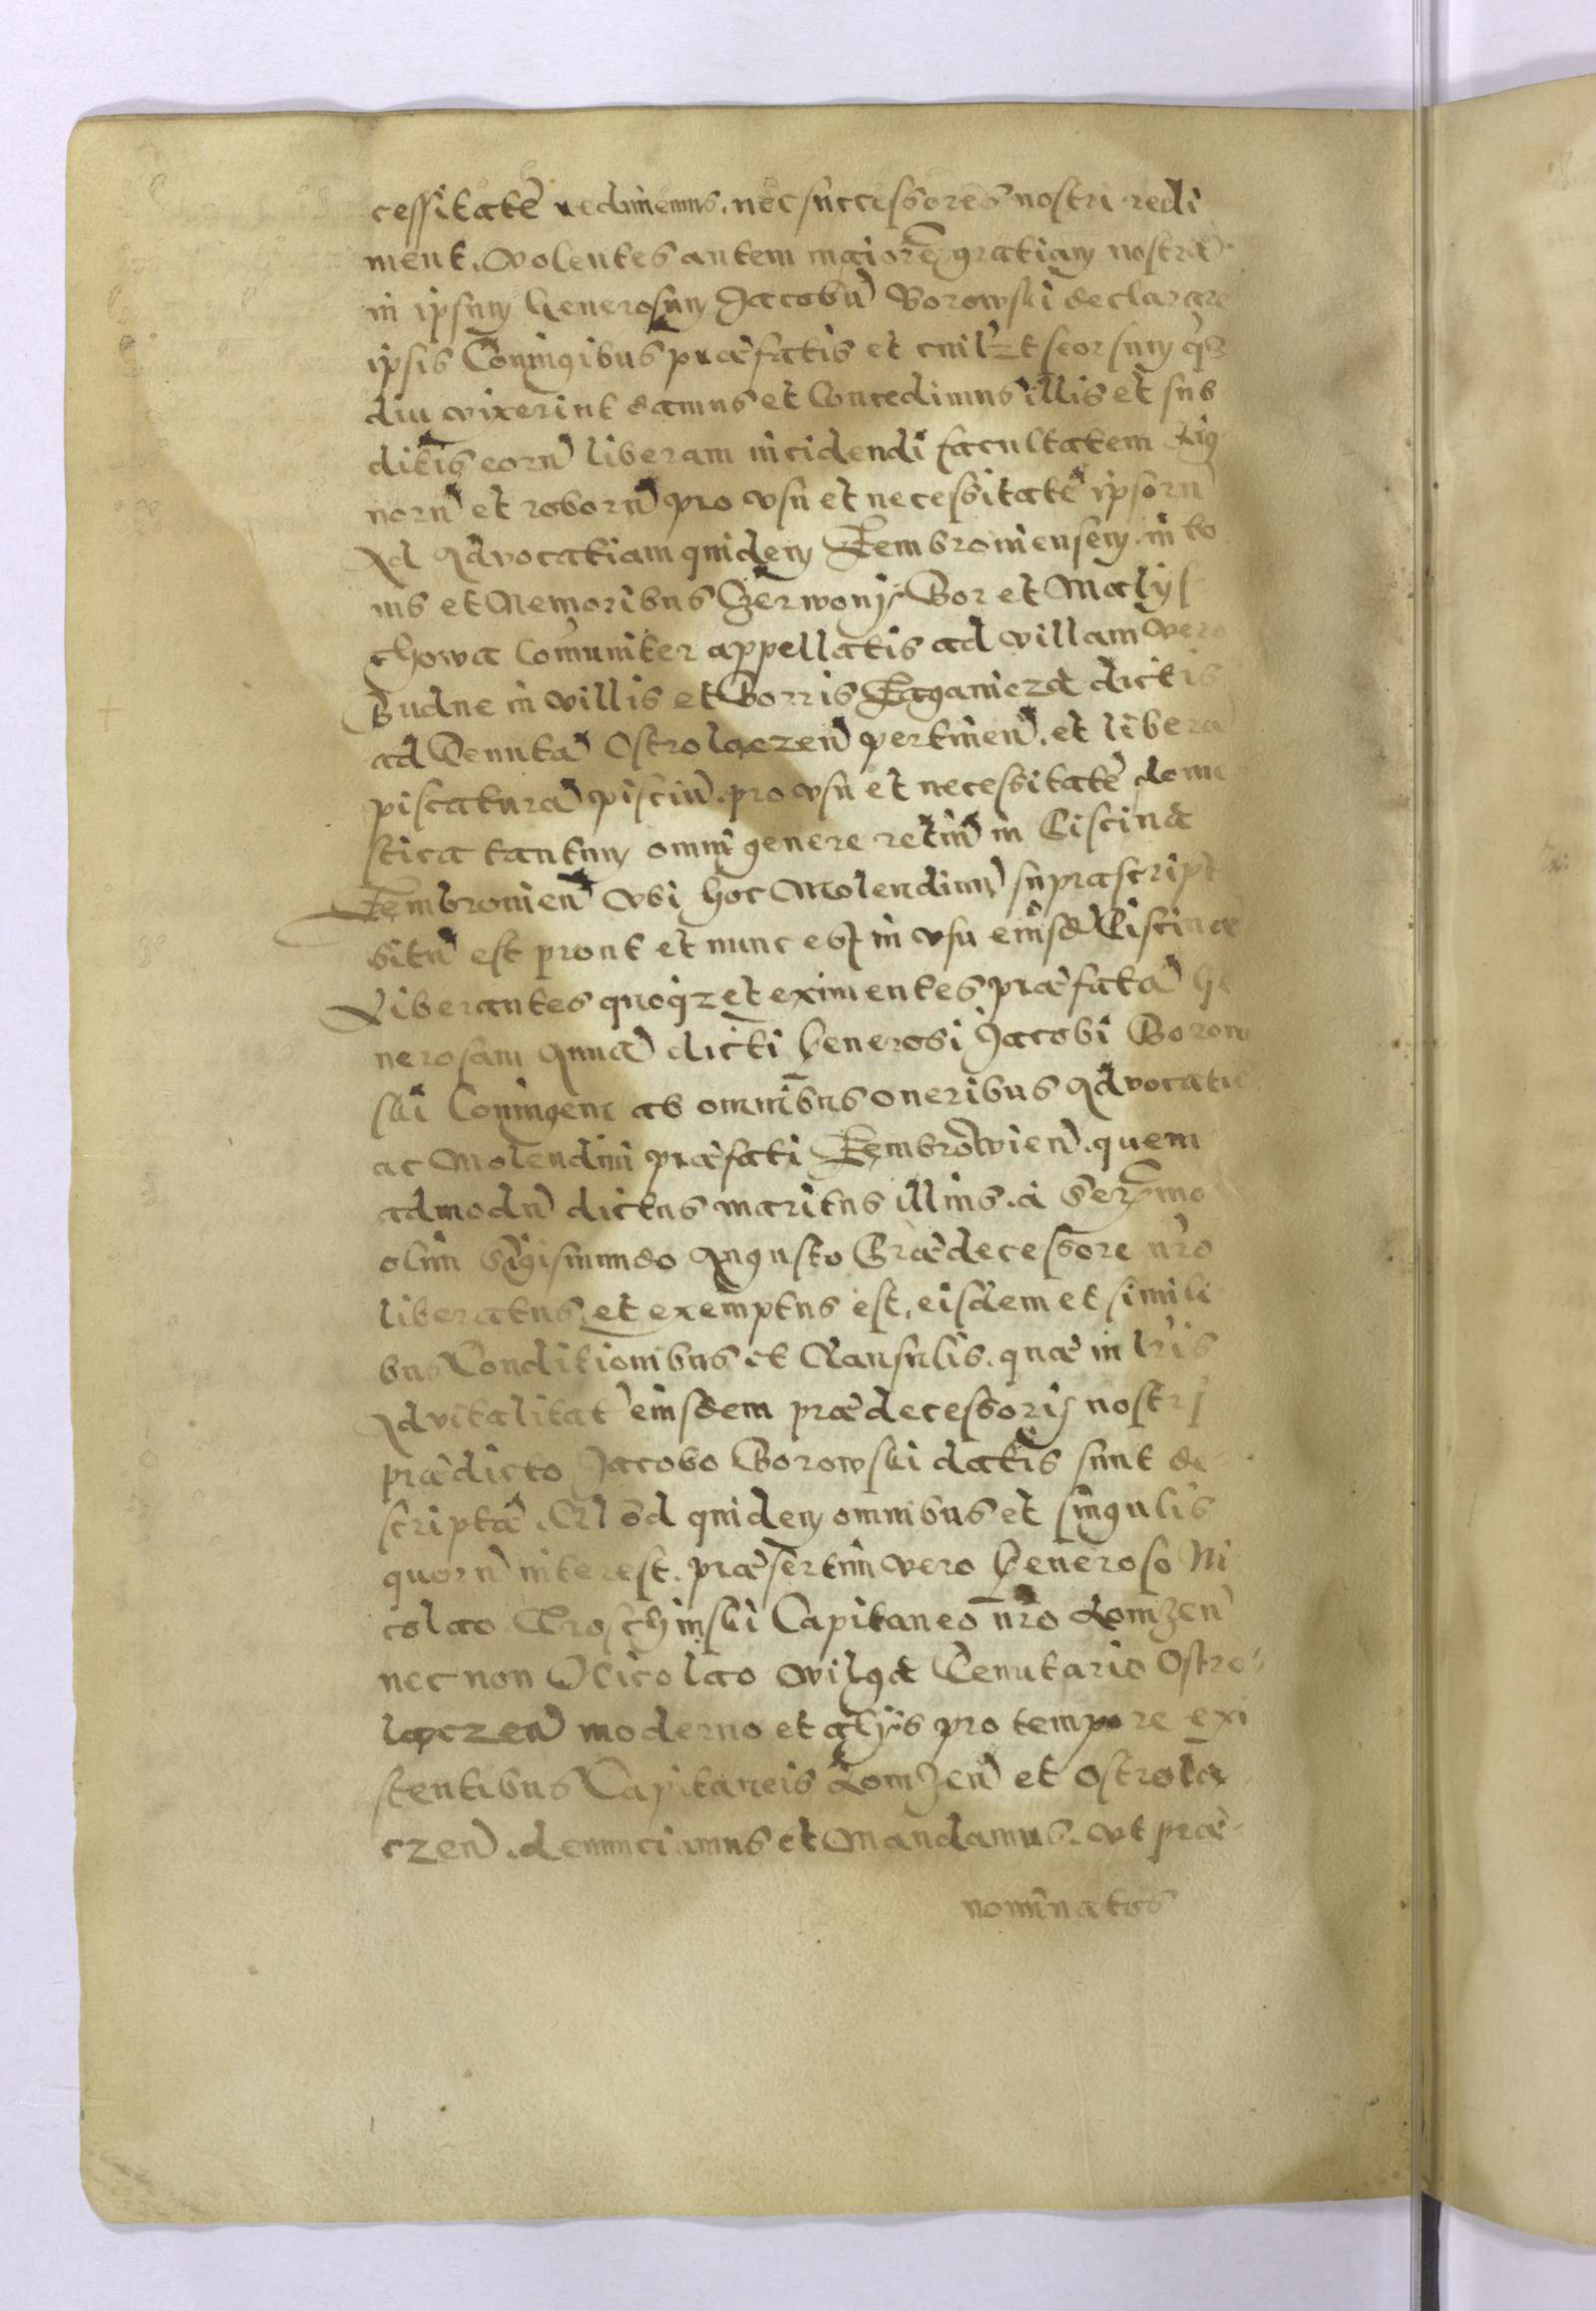 cessitatē redimemus. nec successores nostri redi
ment. Volentes autem maiorē gratiam nostrā
in ipsum Generosum Jacobū Borowski declarare
ipsis Coniugibus præfatis et cuil3t seorsum q̃3
diu vixerint damus et Concedimus illis et sub
ditis eorū liberam incidendi facultatem Lig
norū et roborū pro vsu et necessitatē ipsorū
Ad Aduocatiam quidem Zembrouiensem. in bo
nis et Nemoribus Czerwony Bor et Malys
chowa Comuniter appellatis ad villam vero
Budne in villis et Borris dictis
ad Tenutā Ostrolęczen̄ pertinen̄. et liberā
piscaturā pisciū. pro vsu et necessitatē dome
stica tantum omni genere retiū in Piscina
Zembrouien̄ vbi hoc Molendinū suprascript
sitū est prout et nunc est in vsu eiusdē Piscinæ
Liberantes quoq3 et eximentes præfatā Ge
nerosam Annā dicti Generosi Jacobi Borow
ski Coniugem ab omnibus oneribus Aduocatiæ
ac Molendini præfati Zembrowien̄. quem
admodū dictus maritus illius. a Serēmo
olim Sigismundo Augusto Prædecessore nr̄o
liberatus et exemptus est, eisdem et simili
bus Conditionibus et Clausulis. quæ in lr̄is
Aduitalitat eiusdem prædecessoris nostri
prædicto Jacobo Borowski datis sunt de
scriptæ. Quod quidem omnibus et singulis
quorū interest. præsertim vero Generoso Ni
colao Capitaneo nr̄o Lomzen̄
nec non Nicolao Wilga Tenutario Ostro-
lęczen̄ moderno et alijs pro tempore exi
stentibus Capitaneis Lomzen̄ et Ostrolę
czen̄. denunciamus et Mandamus. vt præ-
nominatos